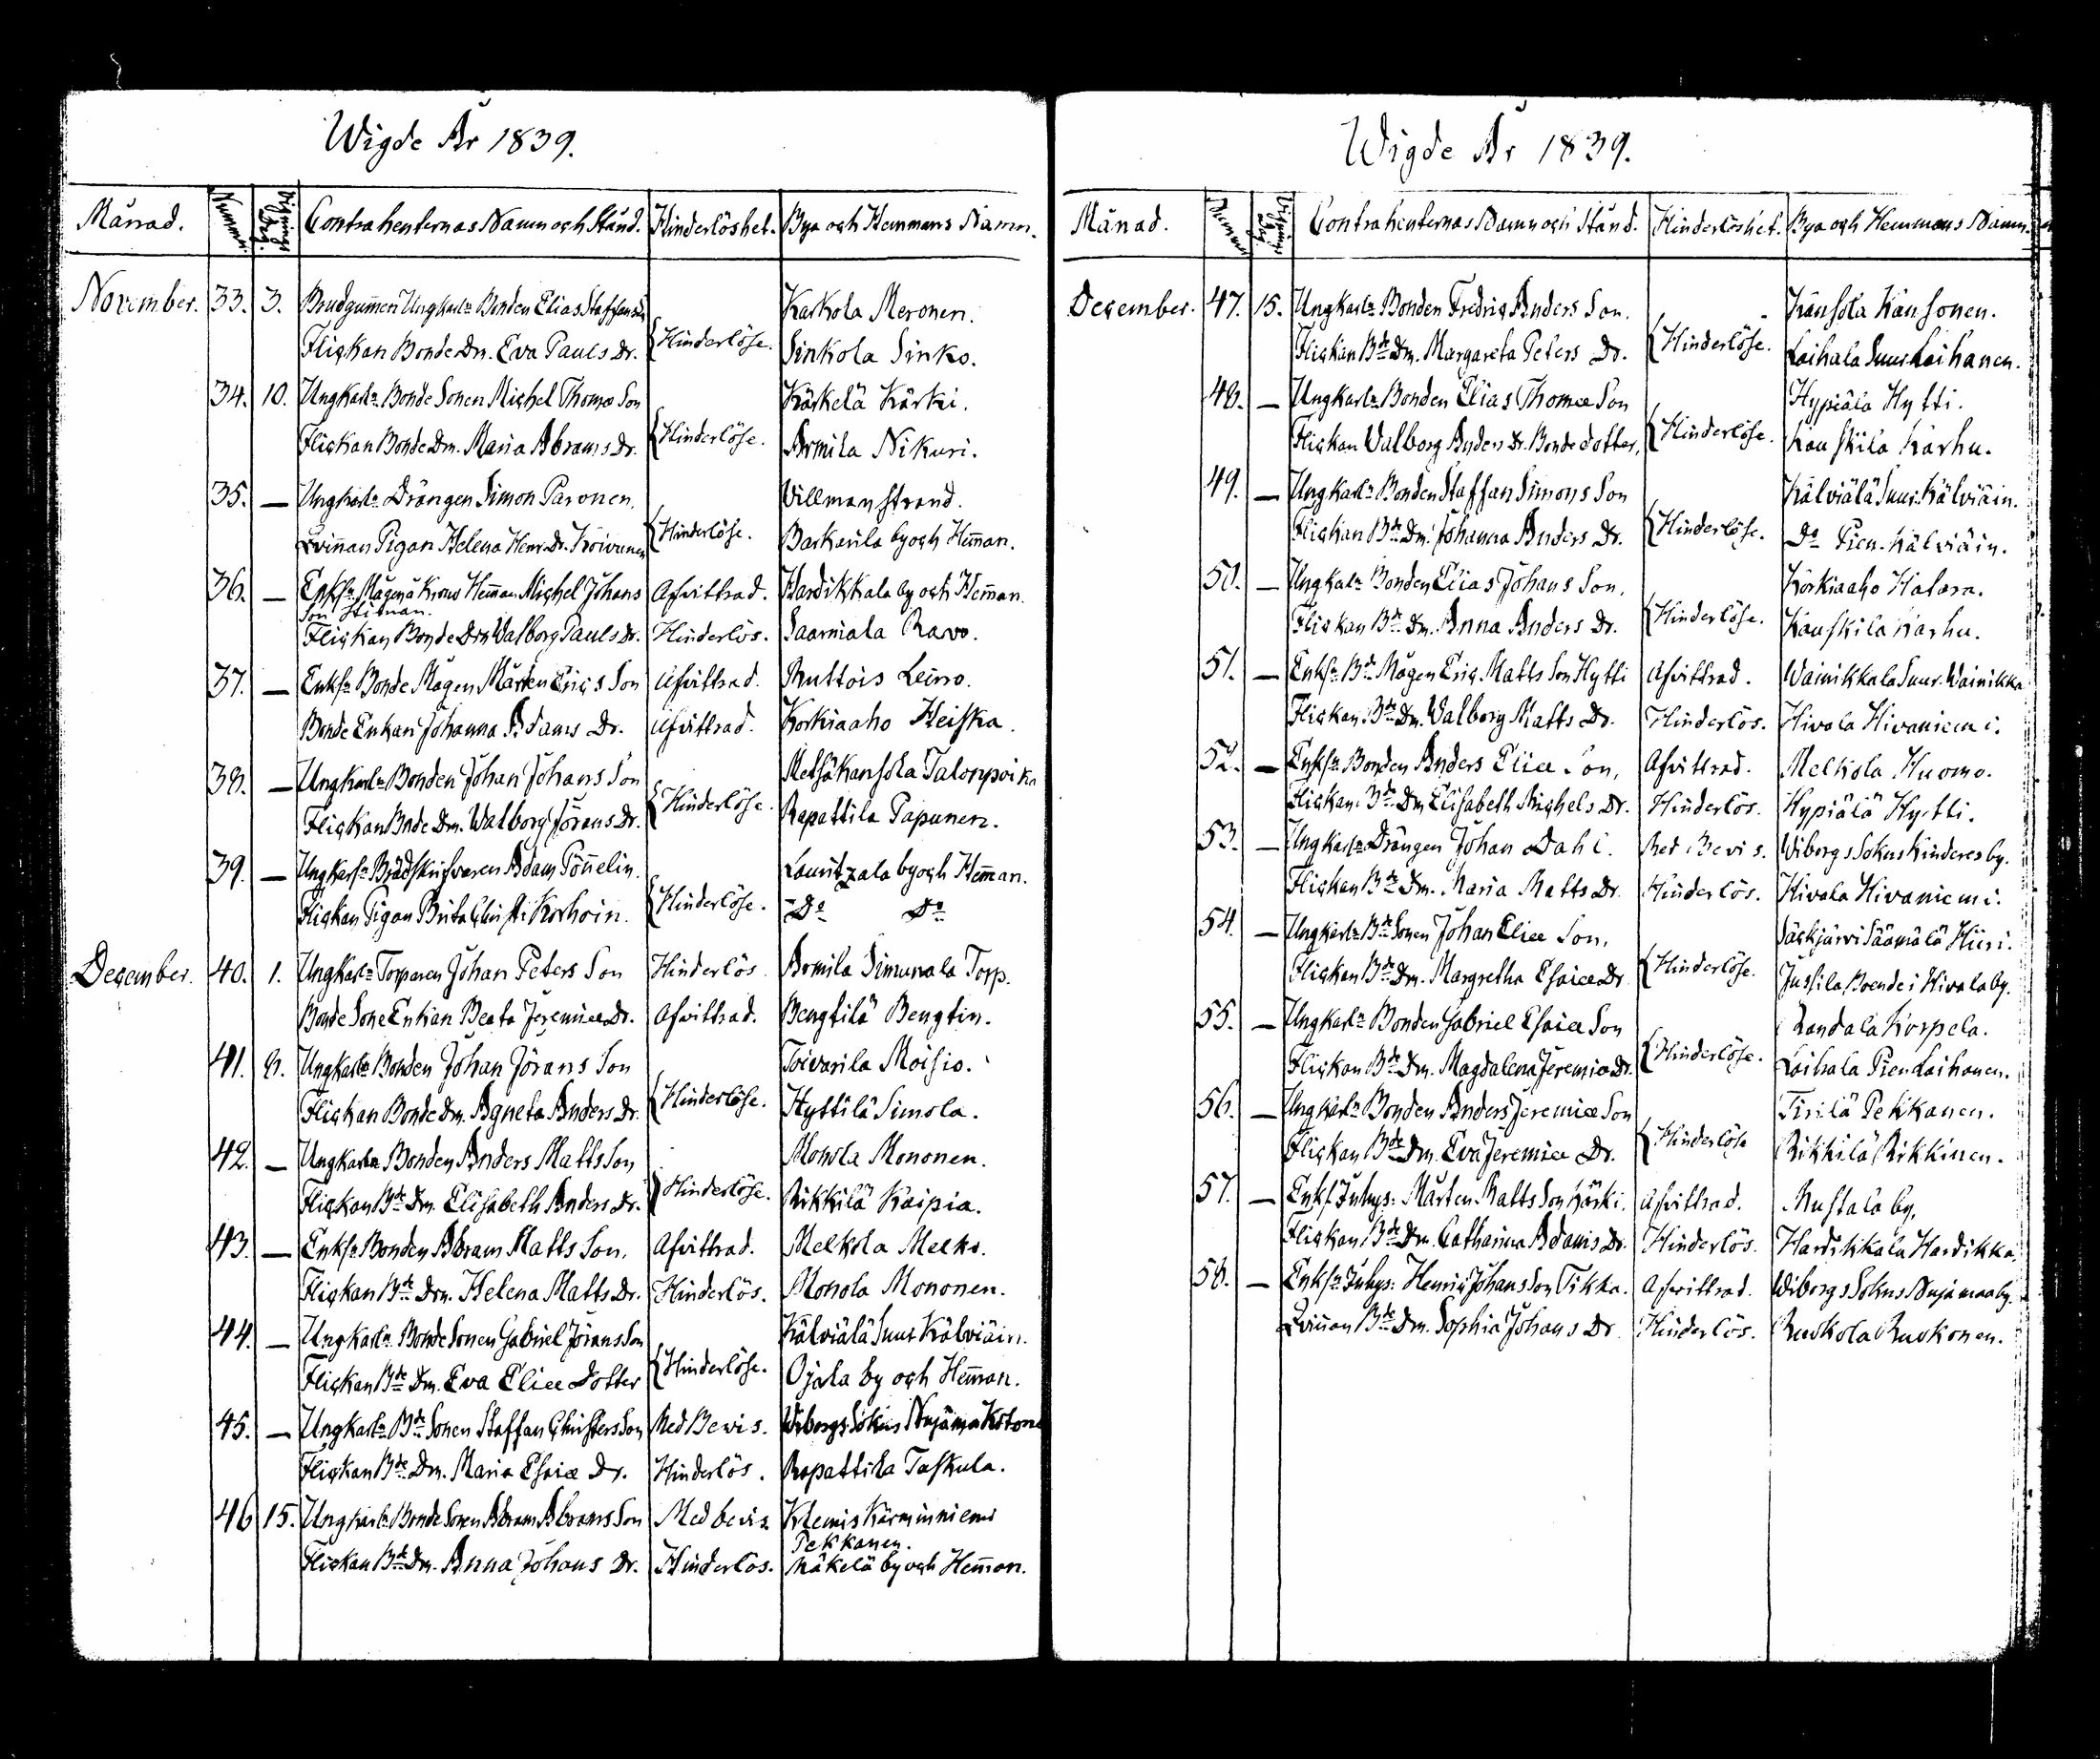 Wigde År 1839.
Månad. Nummer. Vignings Dag. Contrahenternas Namn och Stånd. Hinderlöshet. Bya och Hemmans Namn.
November. 33. 3. Brudgum̄en Ungkarln Bonden Elias Staffansson Karkola Meronen.
Flickan Bonde Dn. Eva Pauls Dr. Hinderlöse. Sinkola Sinko.
34. 10. Ungkarln Bonde Sonen Michel Thomæ Son Kärkelä Kärki.
Flickan Bonde Dm. Maria Abrams Dr. Hinderlöse. Armila Nikuri.
35. — Ungkarln Drängen Simon Paronen. Villmanstrand.
Qvin̄an Pigan Helena Henr. Dr. Koivunen Hinderlöse. Barkarila by och Hem̄an.
36. — Enkln Mågen å Krono Hem̄an Michel Johans Afvittrad. Hardikkala by och Hem̄an.
Son
Flickan Bonde Drn Walborg Pauls Dr. Hinderlös. Saamala Ravo.
37. — Enkln Bonde Mågen Mårten Erics Son Afvittrad. Ruttois Leino.
Bonde Enkan Johanna Adams Dr. Afvittrad. Korkiaaho Heiska.
38. — Ungkarln Bonden Johan Johans Son Metsäkansola Talonpoika
Flickan Bnde Dm. Walborg Jörans Dr. Hinderlöse. Rapattila Papunen.
39. — Ungkarln Brädskrifvaren Adam Pön̄elin. Lauritzala by och Hem̄an.
Flickan Pigan Brita Christi Korhoin. Hinderlöse. Do Do
December. 40. 1. Ungkarln Torparen Johan Peters Son Hinderlös. Armila Simunala Torp.
Bonde Sone Enkan Beata Jeremiæ Dr. Afvittrad. Bengtilä Bengtin.
41. 8. Ungkarln Bonden Johan Jörans Son Toivarila Moisio.
Flickan Bonde Dm. Agneta Anders Dr. Hinderlöse. Hyttilä Simola.
42. — Ungkarln Bonden Anders Matts Son Monola Mononen.
Flickan Bde Dm. Elisabeth Anders Dr. Hinderlöse. Rikkilä Kaipia.
43. — Enkln Bonden Abram Matts Son. Afvittrad. Melkola Melko.
Flickan Bde Drn. Helena Matts Dr. Hinderlös. Monola Mononen.
44. — Ungkarln Bonde Sonen Gabriel Jörans Son Kälviälä Suur Kälviäin.
Flickan Bde Dm. Eva Eliæ Dotter Hinderlöse. Ojala by och Hem̄an.
45. — Ungkarln Bde Sonen Staffan Christers Son Med Bewis. Wiborgs Sokns Nuijama
Flickan Bde Dm. Maria Esaiæ Dr. Hinderlös. Rapattila Taskula.
46 15. Ungkarln Bonde Sonen Abram Abrams Son Med bevis. Klemis Kärminniemi
Pekkanen.
Flickan Bde Dm. Anna Johans Dr. Hinderlös. Mäkelä by och Hem̄an.
Wigde År 1839.
Månad. Nummer Vignings Dag Contrahenternas Namn och Stånd. Hinderlöshet. Bya och Hemmans Namn.
December. 47. 15. Ungkarln Bonden Fredric Anders Son. Känsola Känsonen.
Flickan Bde Dm. Margareta Peters Dr. Hinderlöse. Laihala Suur Laihanen.
48. — Ungkarln Bonden Elias Thomæ Son Hypiälä Hytti.
Flickan Valborg Anders Dr. Bonde dotter. Hinderlöse. Kauskila Karhu.
49. — Ungkarln Bonden Staffan Simons Son Kälviälä Suur Kälviäin.
Flickan Bde Dm. Johanna Anders Dr. Hinderlöse. Do Pien. Kälviäin.
50. — Ungkarln Bonden Elias Johans Son. Korkiaaho Halara.
Flickan Bde Dm. Anna Anders Dr. Hinderlöse. Kauskila Karhu.
51. — Enkln Bde Mågen Eric Matts Son Hytti Afvittrad. Wainikkala Suur Wainikka
Flickan Bde Dm. Valborg Matts Dr. Hinderlös. Hivala Hivaniemi.
52. — Enkln Bonden Anders Eliæ Son. Afvittrad. Melkola Huomo.
Flickan Bde Dm Elisabeth Michels Dr. Hinderlös. Hypiälä Hytti.
53. — Ungkarln Drängen Johan Dahl. Med Bevis. Wiborgs Sokns Kinderes by.
Flickan Bde Dm. Maria Matts Dr. Hinderlös. Hivala Hivaniemi.
54. — Ungkarln Bde Sonen Johan Eliæ Son. Säckjärvi Säämälä Hiiri.
Flickan Bde Dm. Margretha Esaiæ Dr Hinderlöse. Jussila Boende i Hivala by.
55. — Ungkarln Bonden Gabriel Esaiæ Son Randala Korpela.
Flickan Bde Dm. Magdalena Jeremiæ Dr. Hinderlöse. Laihala Pien Laihanen.
56. — Ungkarln Bonden Anders Jeremiæ Son Tirilä Pekkanen.
Flickan Bde Dm. Eva Jeremiæ Dr. Hinderlöse Rikkilä Rikkinen.
57. — Enkl. Inhys: Mårten Matts Son Kärki. Afvittrad. Mustala by.
Flickan Bde Dm. Catharina Adams Dr. Hinderlös. Hardikkala Hardikka.
58. — Enkln Inhys: Henric Johans Son Tikka. Afvittrad. Wiborgs Sokns Nuijamaa by.
Qvin̄an Bde Dm. Sophia Johans Dr Hinderlös. Ruokola Ruokonen.